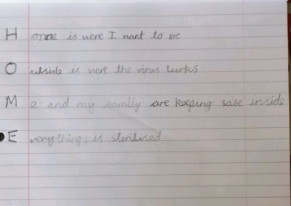 H ome is were I want to be
O utside is were the virus lurks
M e and my family are keeping safe inside
E verything is sterilised